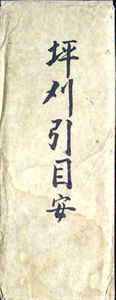 坪刈引目安